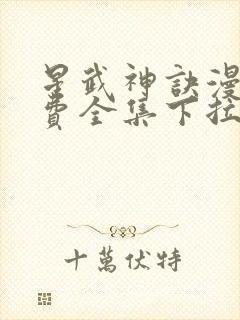 星武神訣漫
費全集下拉
十萬伏特